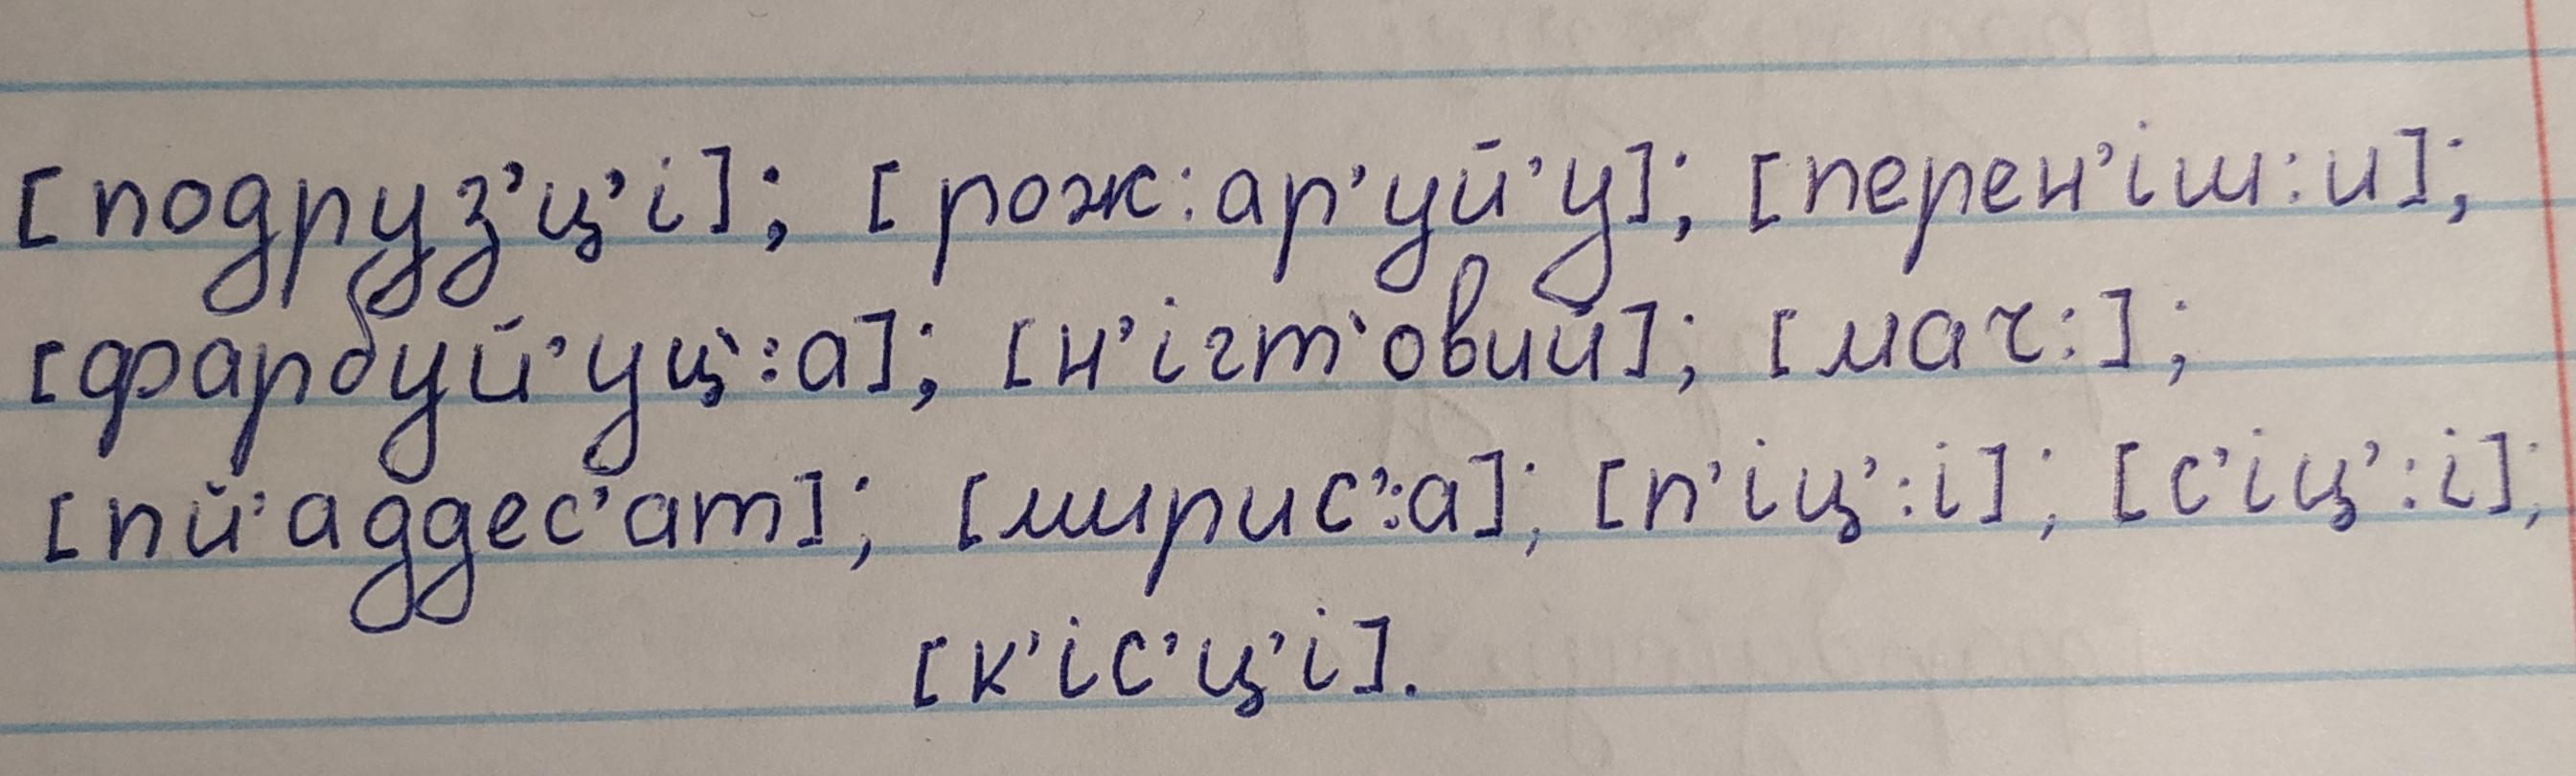 [подруз’ц’і]; [рож:ар’уй’у]; [перен’іш:и];
[фарбуй’уц’:а]; [н’ігт’овий]; [мач:];
[пй’аддес’ат]; [мирис’:а]; [п’іц’:і]; [с’іц’:і];
[к’іс’ц’і].